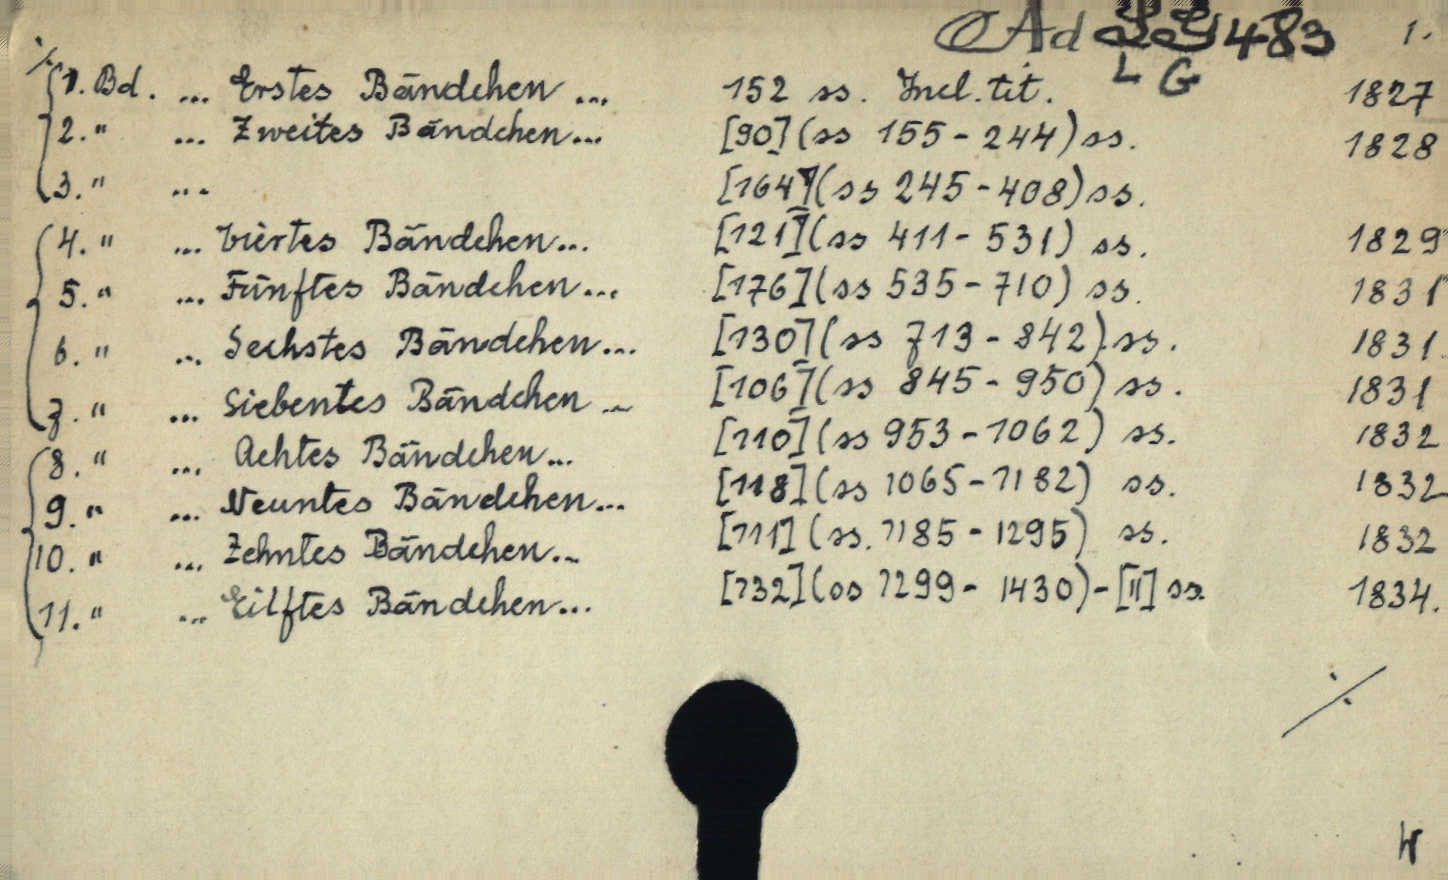 Ad 483 1.
L G
1. Bd. ... Erstes Bändchen ... 152 ss. Incl. tit. 1827
2. " ... Zweites Bändchen... [90] (ss 155-244) ss. 1828
3. " ... [164] (ss 245-408) ss.
4. " ... Viertes Bändchen... [121] (ss 411-531) ss. 1829
5. " ... Fünftes Bändchen... [176] (ss 535-710) ss. 1831
6. " ... Sechstes Bändchen... [130] (ss 713-842) ss. 1831.
7. " ... Siebentes Bändchen ... [106] (ss 845-950) ss. 1831
8. " ... Achtes Bändchen... [110] (ss 953-1062) ss. 1832
9. " ... Neuntes Bändchen... [118] (ss 1065-1182) ss. 1832
10. " ... Zehntes Bändchen... [111] (ss. 1185-1295) ss. 1832
11. " ... Eilftes Bändchen... [132] (ss 1299-1430)-[II] ss. 1834.